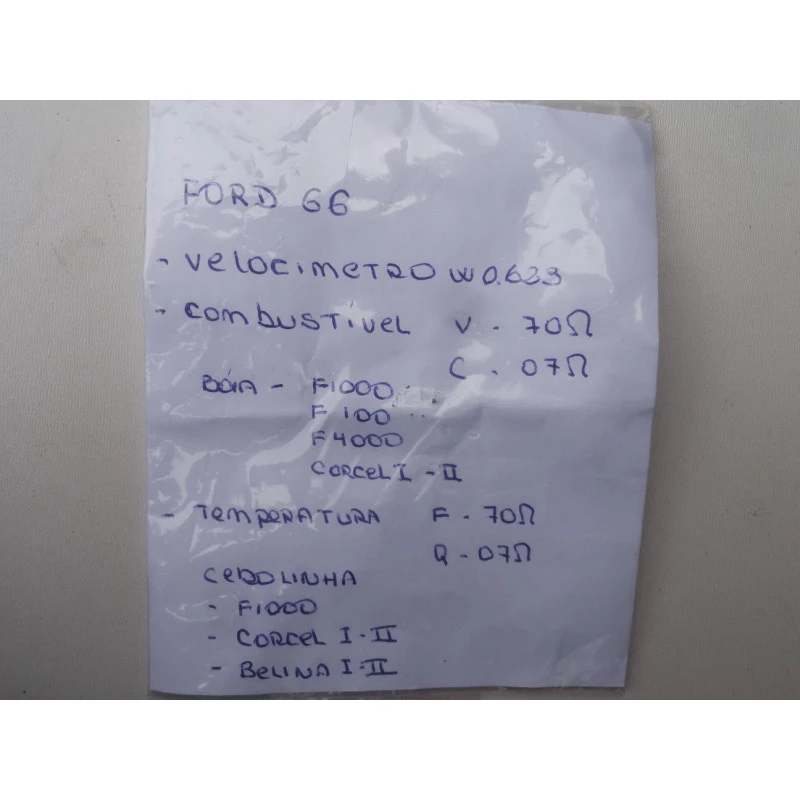 FORD 66
- VELOCIMETRO W 0.623
- COMBUSTÍVEL V - 70Ω
C - 07Ω
BÓIA - F1000
F 100
F4000
CORCEL I - II
- TEMPERATURA F - 70Ω
Q - 07Ω
CEBOLINHA
- F1000
- CORCEL I - II
- BELINA I - II